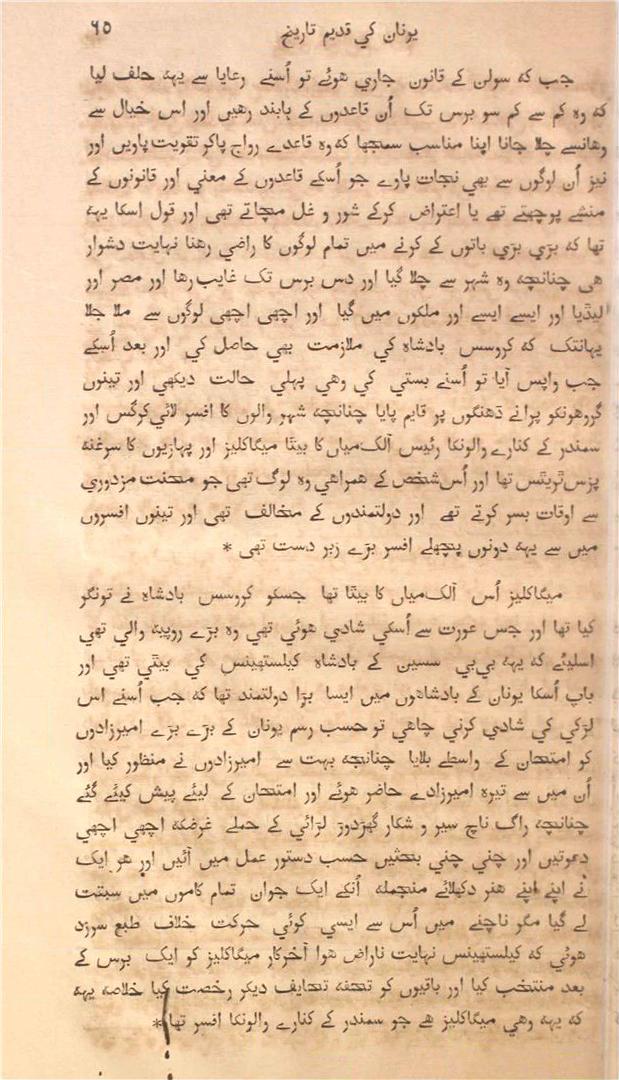 یونان کي قدیم تاریخ
۶۵
جب که سولن کے قانون جاري هوئے تو اُسنے رعایا سے یہه حلف لیا
که وہ کم سے کم سو برس تک اُن قاعدوں کے پابند رهیں اور اس خیال سے
وهانسے چلا جانا اپنا مناسب سمجها که وہ قاعدے رواج پاکر تقویت پاویں اور
نیز اُن لوگوں سے بهي نجات پاوے جو اُسکے قاعدوں کے معني اور قانونوں کے
منشے پوچهتے تهے یا اعتراض کرکے شور و غل مچاتے تهی اور قول اسکا یہه
تها که بڑي بڑي باتوں کے کرنے میں تمام لوگوں کا راضي رهنا نہایت دشوار
هی چنانچه وہ شہر سے چلا گیا اور دس برس تک غایب رها اور مصر اور
لیڈیا اور ایسے ایسے اور ملکوں میں گیا اور اچهی اچهی لوگوں سے ملا جلا
یہانتک که کروسس بادشاہ کي ملازمت بهي حاصل کي اور بعد اُسکے
جب واپس آیا تو اُسنے بستي کي وهي پہلي حالت دیکهي اور تینوں
گروهونکو پرانے ڈهنگوں پر قایم پایا چنانچه شہر والوں کا افسر لائي‌کرگس اور
سمندر کے کنارے والونکا رئیس آلک‌میاں کا بیٹا میگاکلیز اور پہاڑیوں کا سرغنه
پزس‌ٹریٹس تها اور اُس‌شخص کے همراهي وہ لوگ تهی جو محنت مزدوري
سے اوقات بسر کرتے تهے اور دولتمندوں کے مخالف تهی اور تینوں افسروں
میں سے یہه دونوں پچهلے افسر بڑے زبر دست تهی *
میگاکلیز اُس آلک‌میاں کا بیٹا تها جسکو کروسس بادشاہ نے تونگر
کیا تها اور جس عورت سے اُسکي شادي هوئي تهی وہ بڑے روپیه والي تهی
اسلیئے که یہه بي‌بي سسین کے بادشاہ کیلستهینس کي بیٹي تهی اور
باپ اُسکا یونان کے بادشاهوں میں ایسا بڑا دولتمند تها که جب اُسنے اس
لڑکي کي شادي کرني چاهي تو حسب رسم یونان کے بڑے بڑے امیرزادوں
کو امتحان کے واسطے بلایا چنانچه بہت سے امیرزادوں نے منظور کیا اور
اُن میں سے تیرہ امیرزادے حاضر هوئے اور امتحان کے لیئے پیش کیئے گئے
چنانچه راگ ناچ سیر و شکار گهڑدوڑ لڑائي کے حملے غرضکه اچهي اچهي
دعوتیں اور چني چني بحثیں حسب دستور عمل میں آئیں اور هر ایک
نے اپنے اپنے هنر دکهلائے منجمله اُنکے ایک جوان تمام کاموں میں سبقت
لے گیا مگر ناچنے میں اُس سے ایسي کوئي حرکت خلاف طبع سرزد
هوئي که کیلستهینس نہایت ناراض هوا آخرکار میگاکلیز کو ایک برس کے
بعد منتخب کیا اور باقیوں کو تحفه تحایف دیکر رخصت کیا خلاصه یہه
که یہه وهي میگاکلیز هے جو سمندر کے کنارے والونکا افسر تها *